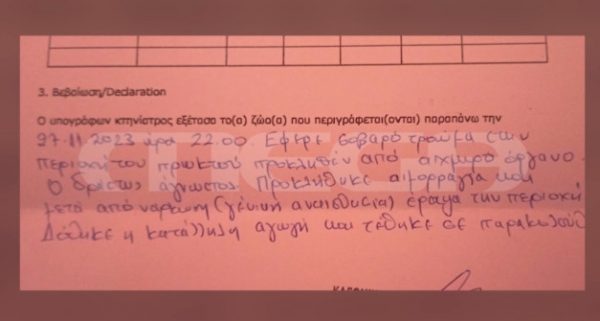 3. Βεβαίωση/Declaration
Ο υπογράφων κτηνίατρος εξέτασα το(α) ζώο(α) που περιγράφεται(ονται) παραπάνω την
27.11.2023 ωρα 22.00 Εφερε σοβαρό τραύμα στην
περιοχή του πρωκτού προκληθέν από αιχμηρό όργανο.
Ο δράστης άγνωστος. Προκλήθηκε αιμορραγία και
μετά από νάρκωση (γενική αναισθησία) έραψα την περιοχή
Δόθηκε η κατάλληλη αγωγή και τέθηκε σε